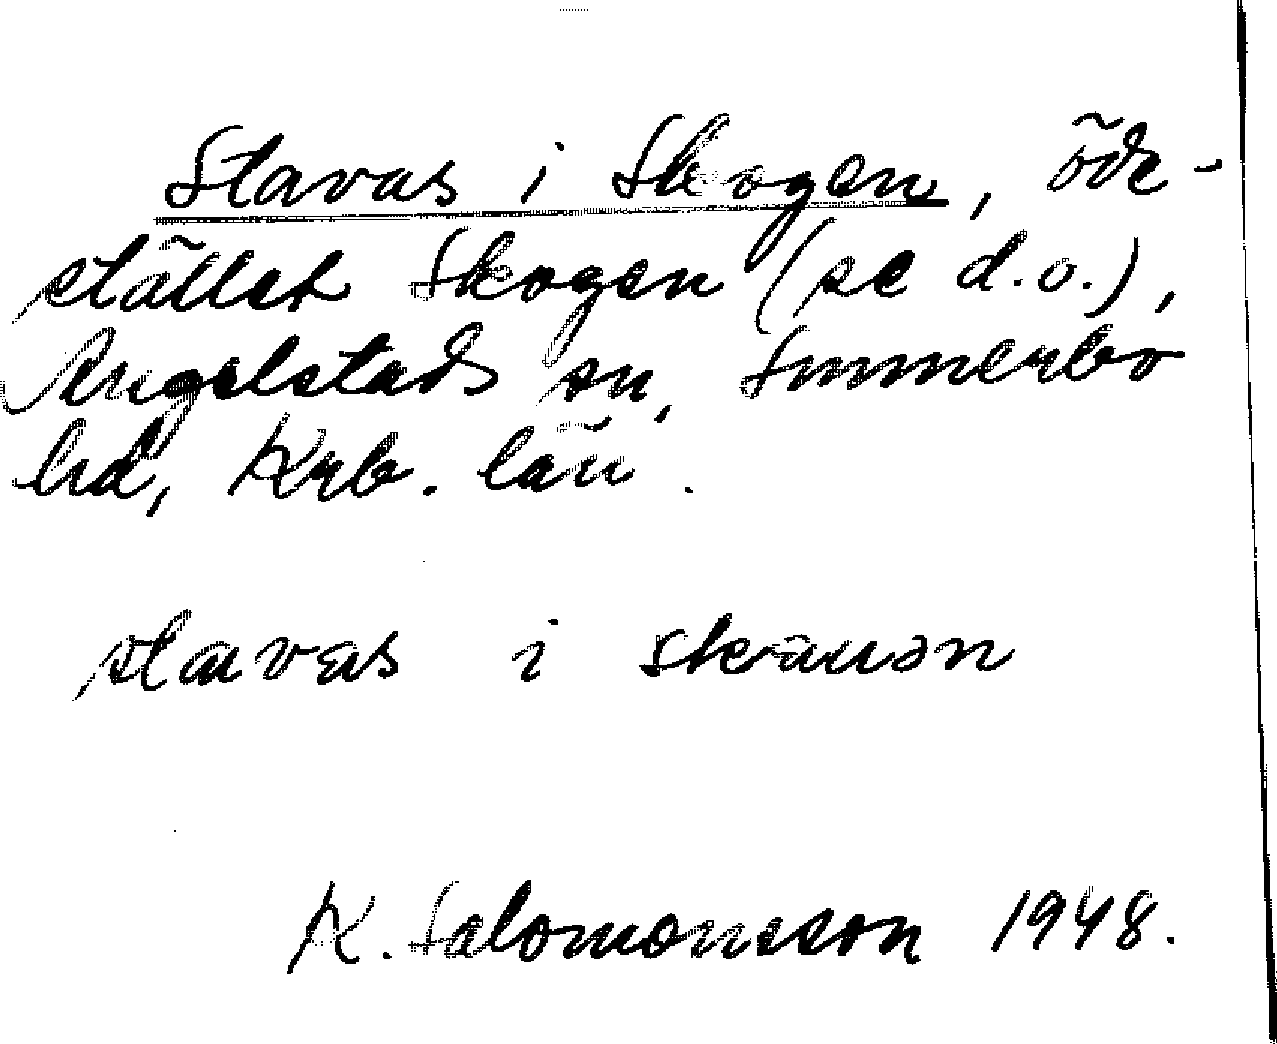 Stavas i Skogen, öde-
stället Skogen (se d.o.),
Angelstads sn, Sunnerbo
hd, Krb. län.
stavas i skauən
K. Salomonsson 1948.